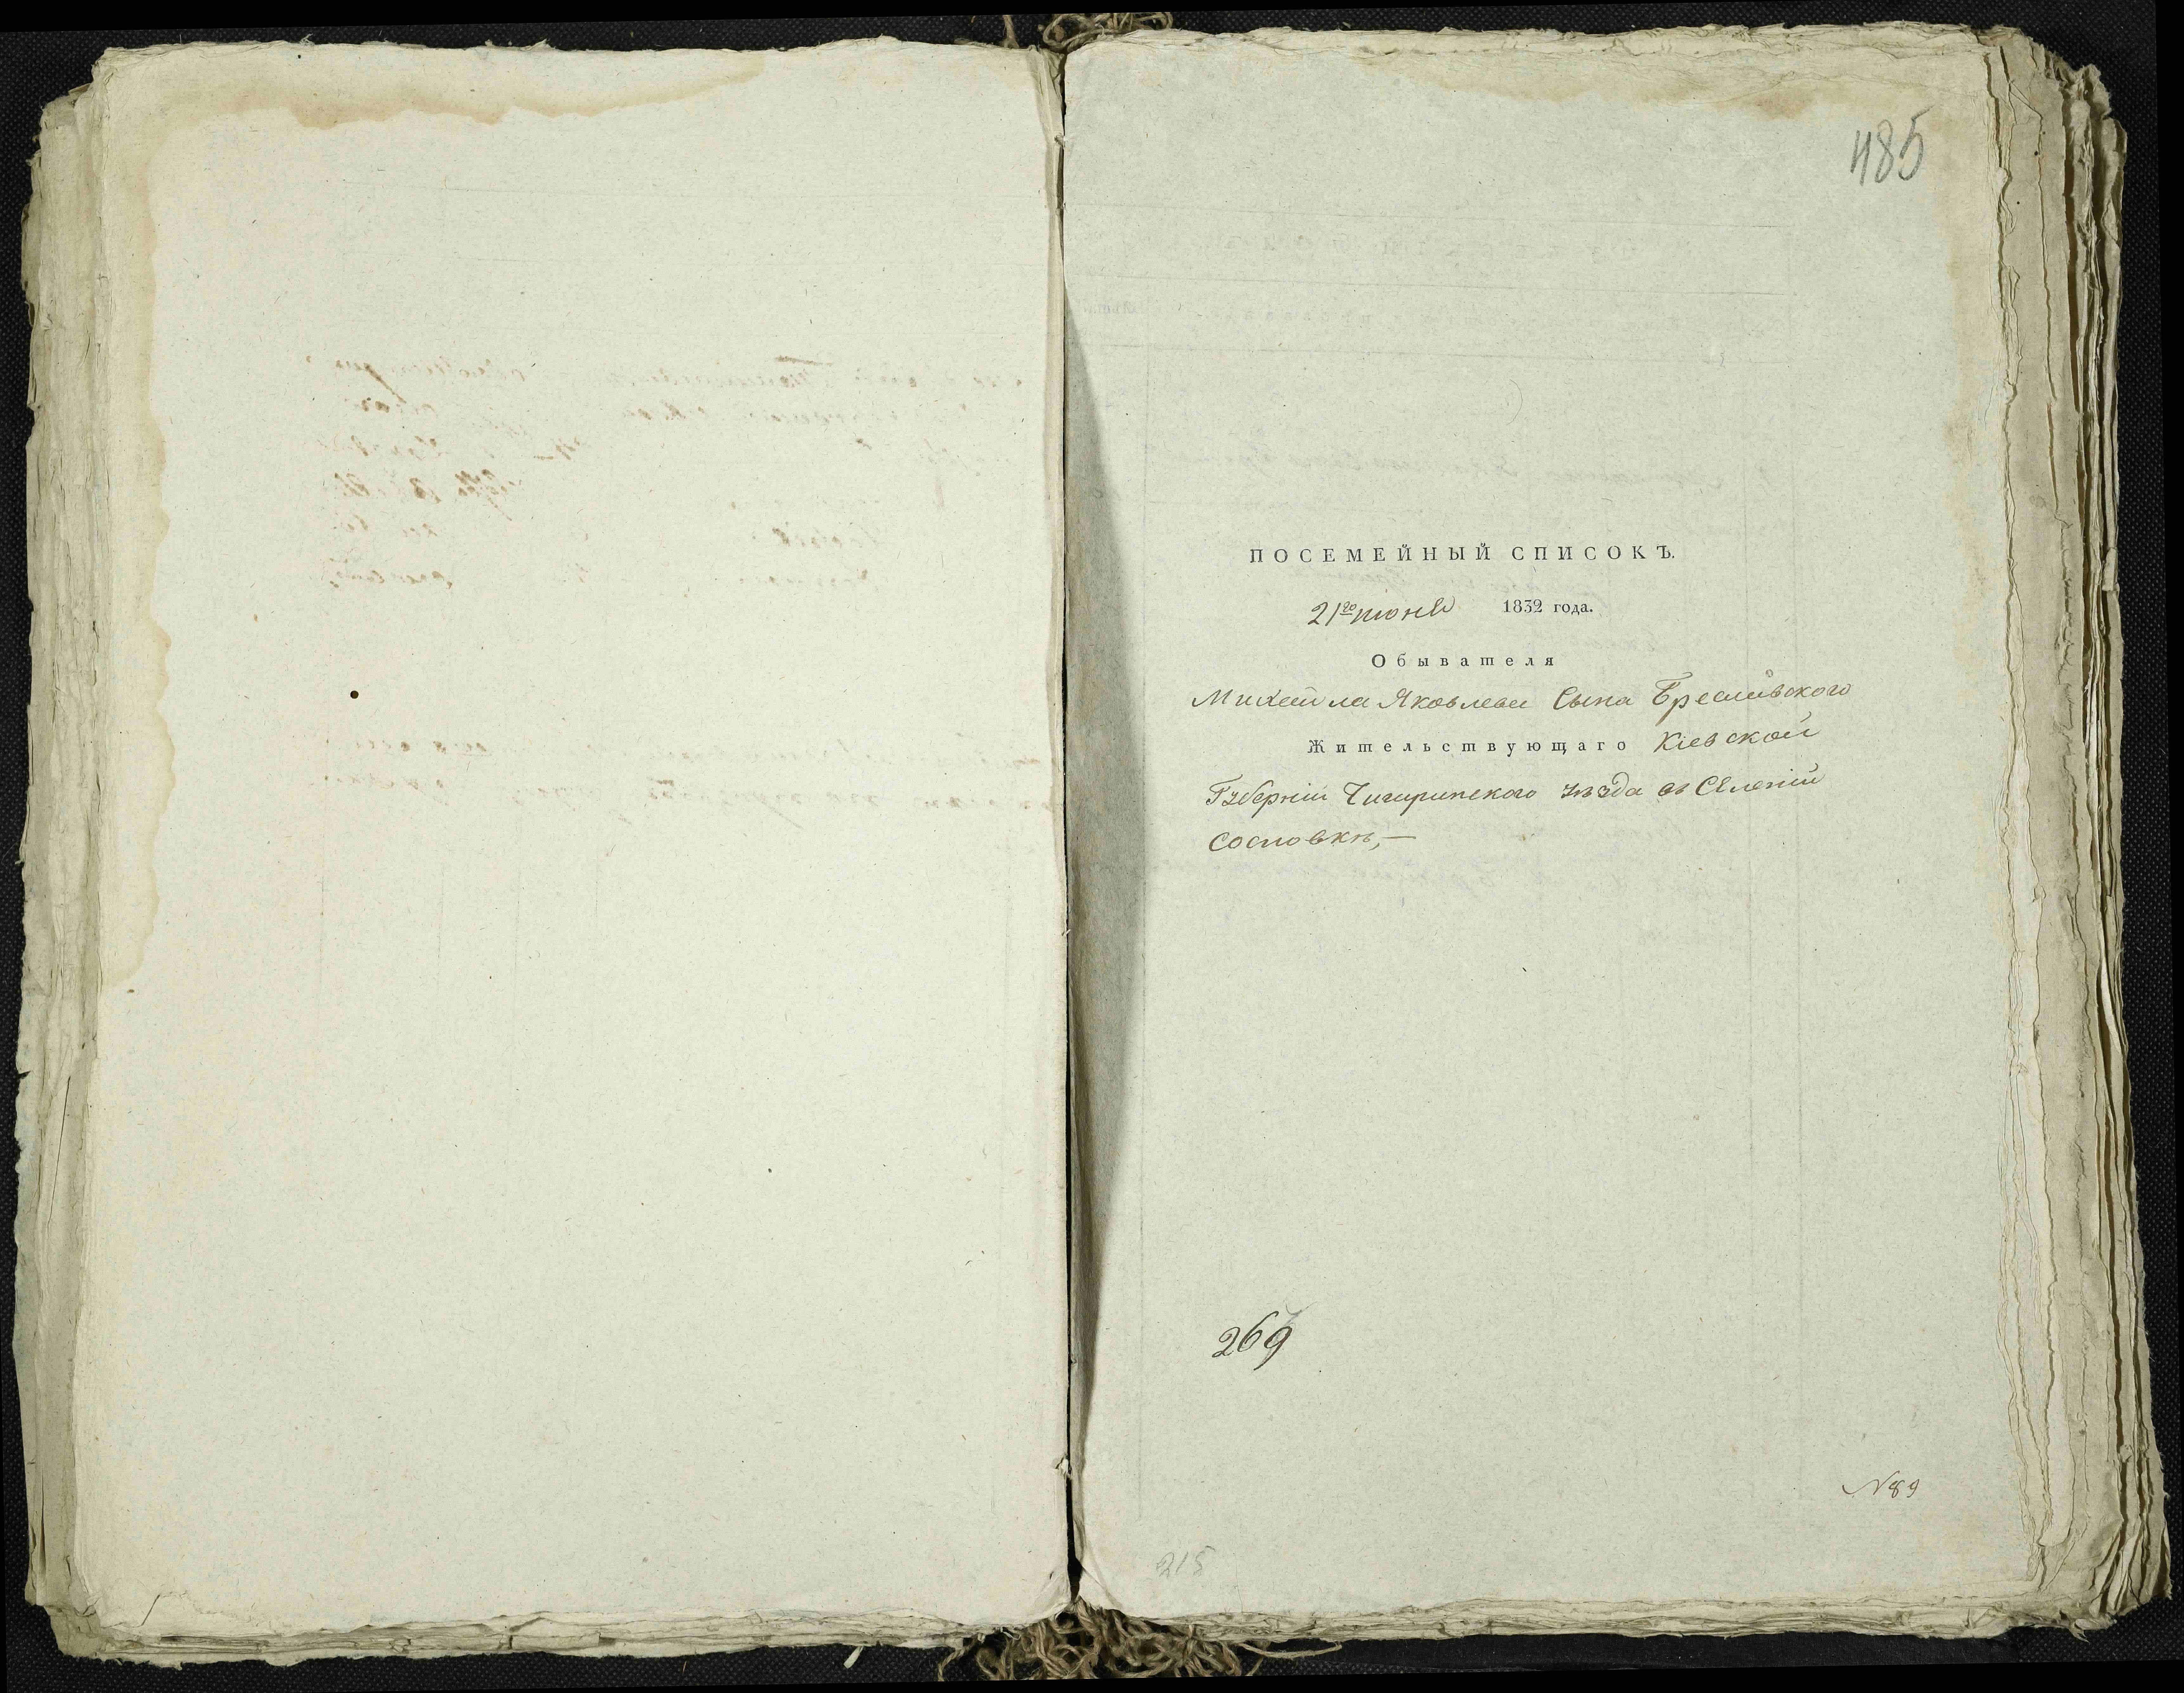 485
ПОСЕМЕЙНЫЙ СПИСОКЪ.
21го июня 1832 года.
Обывателя
Михайла Яковлева Сына
Жительствующаго Кіевской
Губерніи Чигиринского уѣзда въ Селеніи
Сосновкѣ,—
269
N 89
215